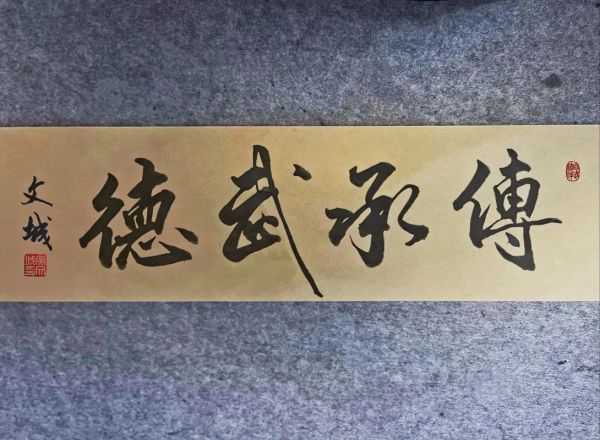 傳承武德
文城